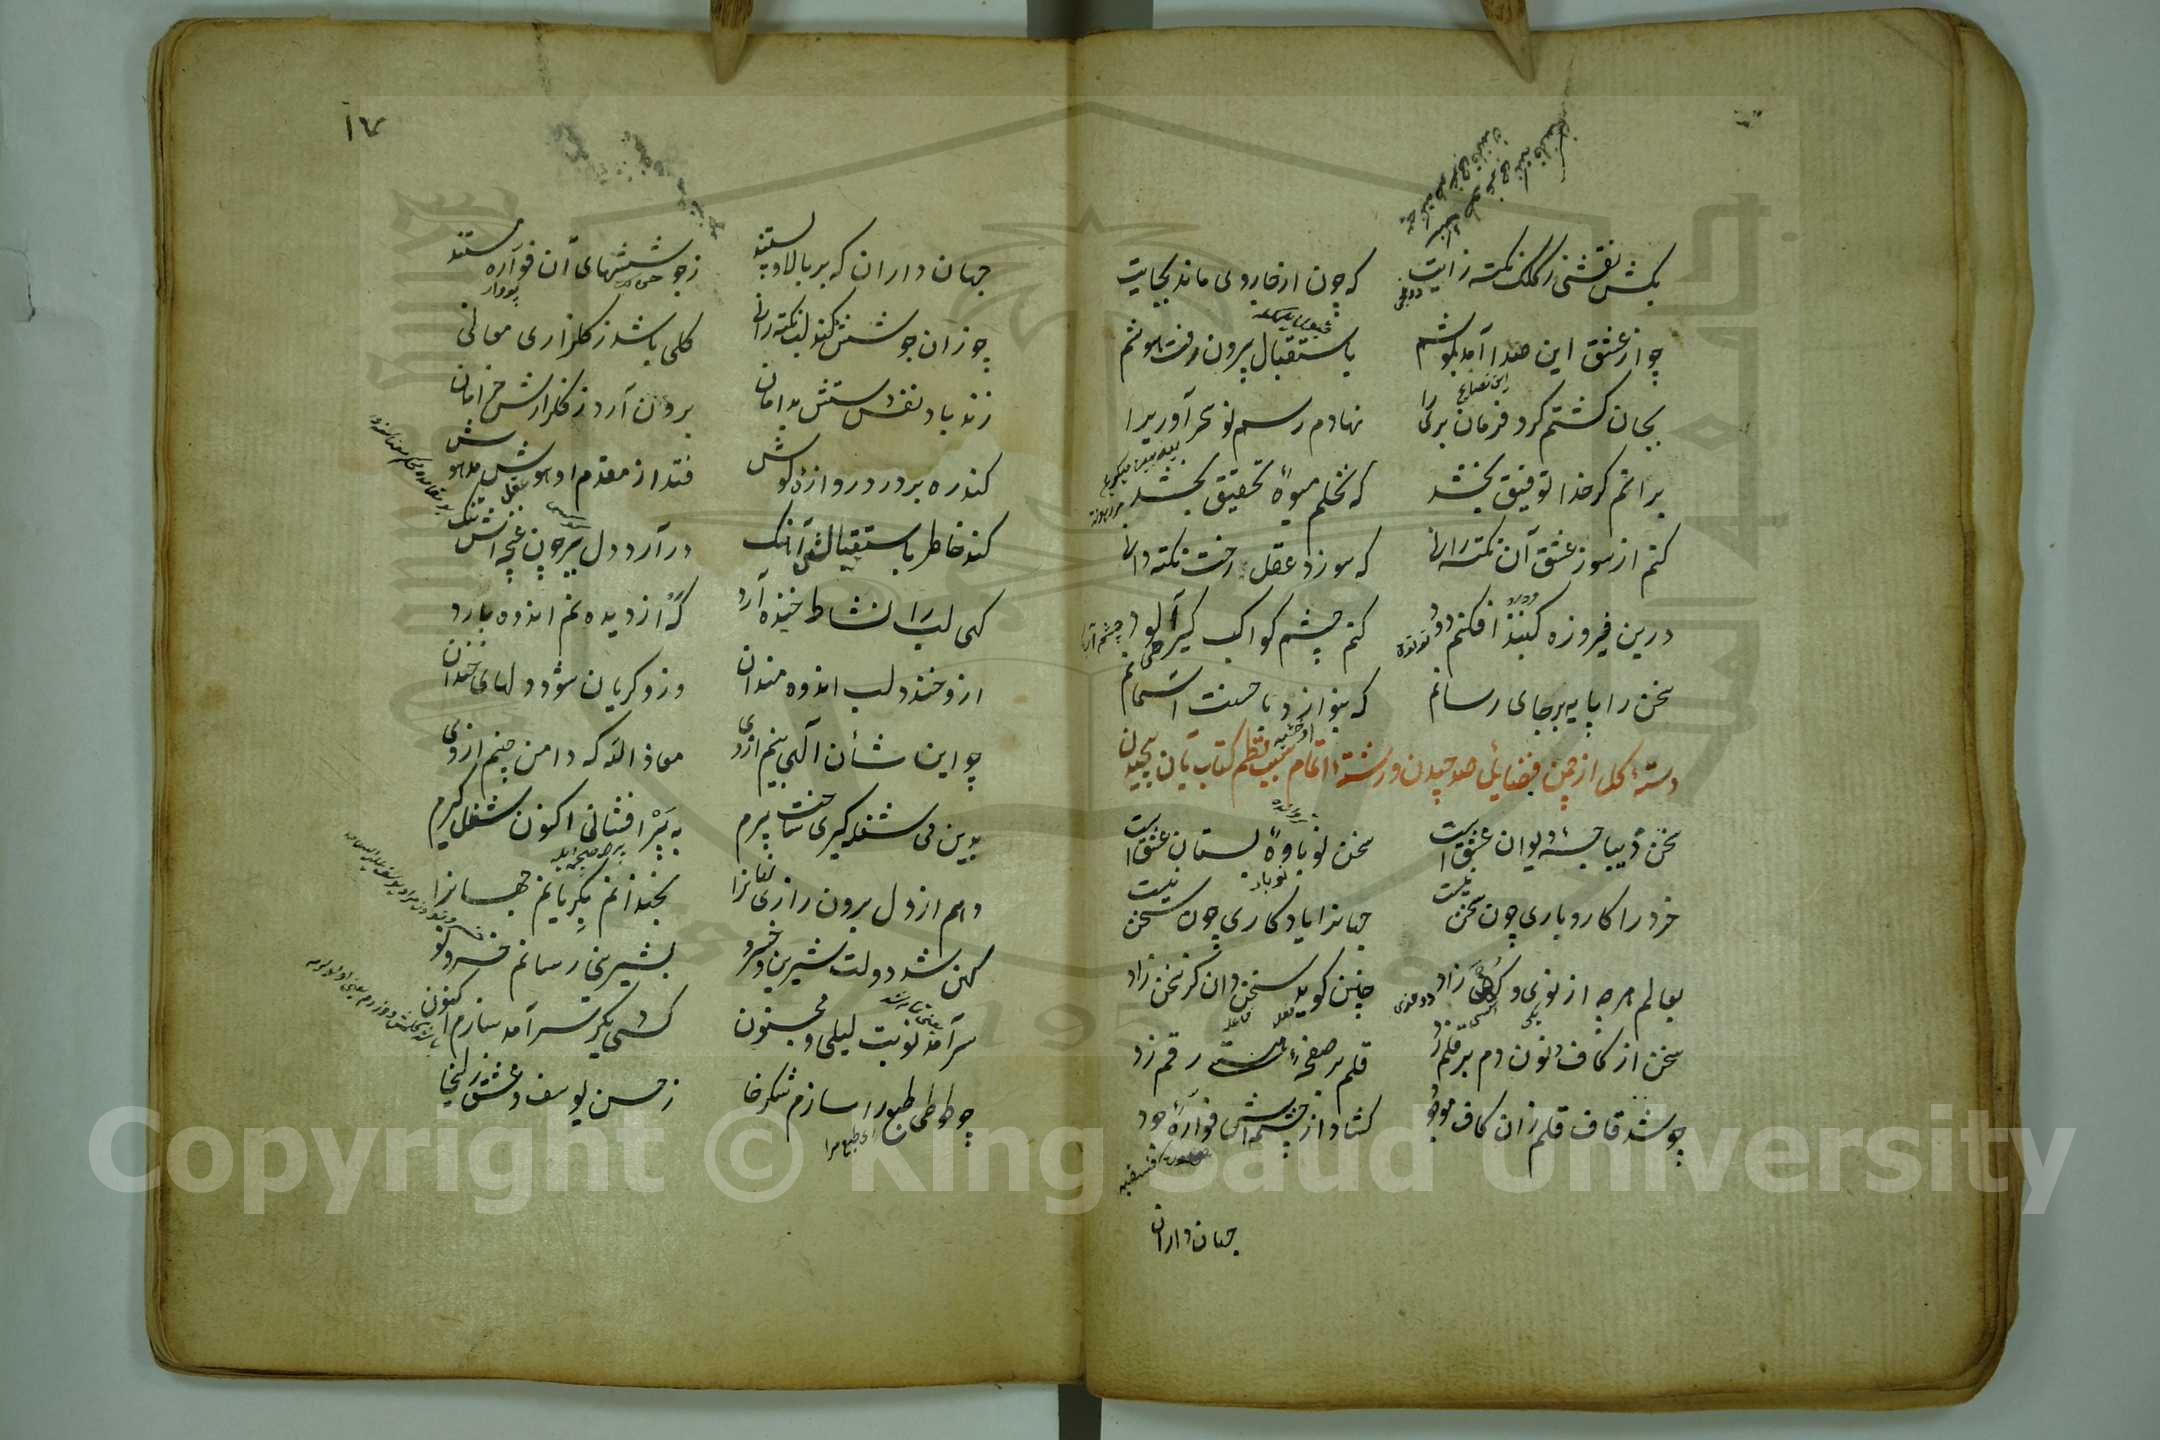 بکش نقشی ز کلک نکته زایت که چون از خاروی ماند بجایت
چو از عشق این صدا آمد بگوشم باستقبال بیرون رفت هوشم
بجان گشتم کرد فرمان بری را نهادم رسم نو سحر آوریرا
برانم گر خدا توفیق بخشد که نخلم میوهٔ تحقیق بخشد
کنم از سوز عشق آن نکته رانی که سوزد عقل رخت نکته دانی
درین فیروزه گنبذ افکنم دود کنم چشم کواکب گریه آلود
سخن را پایه بر جای رسانم که بنوازد باحسنت آسمانم
دستهٔ گل از چمن فضایل سخن چیدن و رشتهٔ اتمام سبب نظم کتاب بآن پیچیدن
سخن دیباچهٔ دیوان عشق است سخن نوباوهٔ بستان عشق است
خرد را کار و باری چون سخن نیست جهانرا یادکاری چون سخن نیست
بعالم هرچه از نوی و کهن زاد چنین کوید سخن دان کز سخن زاد
سخن از کاف و نون دم بر قلم زد قلم بر صفحهٔ هستی رقم زد
چو شد قاف قلم زان کاف موجود کشاد از چشمه اش فوارهٔ جود
جهان داران
١٧
جهان داران که بر بالا و پستند ز جوششهای آن فواره مستند
چو زان جوشش کند لب نکته رانی کلی باشد ز کلزاری معانی
زند باد نفس دستش بدامان برون آرد ز کلزارش خرامان
کند ره بر در دروازهٔ کوش فتد از مقدم او هوش مدهوش
کند خاطر باستقبالش آهنک در آرد دل ببر چون غنچه اش تنک
کهی لب را نشاط خنده آرد که از دیده نم اندوه بارد
ازو خندد لب اندوه مندان وزو کریان شود دلهای خندان
چو این شان الهی بینم از وی معاذ الله که دامن چینم از وی
بدین می شغل کیری ساخت پیرم به پیر افشانی اکنون شغل کیرم
دهم از دل برون راز نهانرا بخندانم بکریانم جهانرا
کهن شد دولت شیرین و خسرو بشیرینی رسانم خسرو نو
سر آمد نوبت لیلی و مجنون کسی دیکر سر آمد سازم اکنون
چو طوطی طبع را سازم شکر خا ز حسن یوسف و عشق زلیخا
Copyright © King Saud University